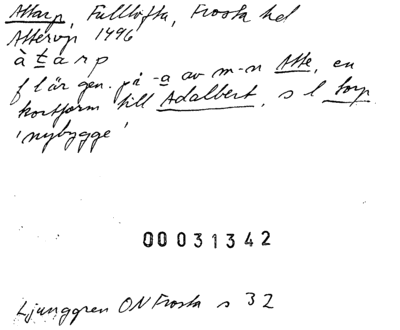 Attarp, Fulltofta, Frosta hd
Atterup 1496
àtarp
f l är gen. på -a av m-n Atte, en
kortform till Adalbert, s l torp
'nybygge'
00031342
Ljunggren ON Frosta s 32